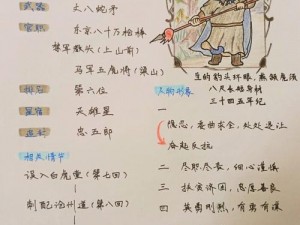 武器 丈八蛇矛
官职 东京八十万枪棒
禁军教头（上山前）
马军五虎将（梁山）
排名 第六位
星宿 天雄星
忠五郎
相关情节
误入白虎堂（第七回）
刺配沧州道（第八回）
生的豹头环眼，燕颔虎须
八尺长短身材
三十四五年纪
人物形象
一 隐忍、委曲求全、处处退让
奋起反抗
二 尽职、尽责、细心谨慎
三 扶贫济困，忠厚善良
四 英勇刚烈，有勇有谋